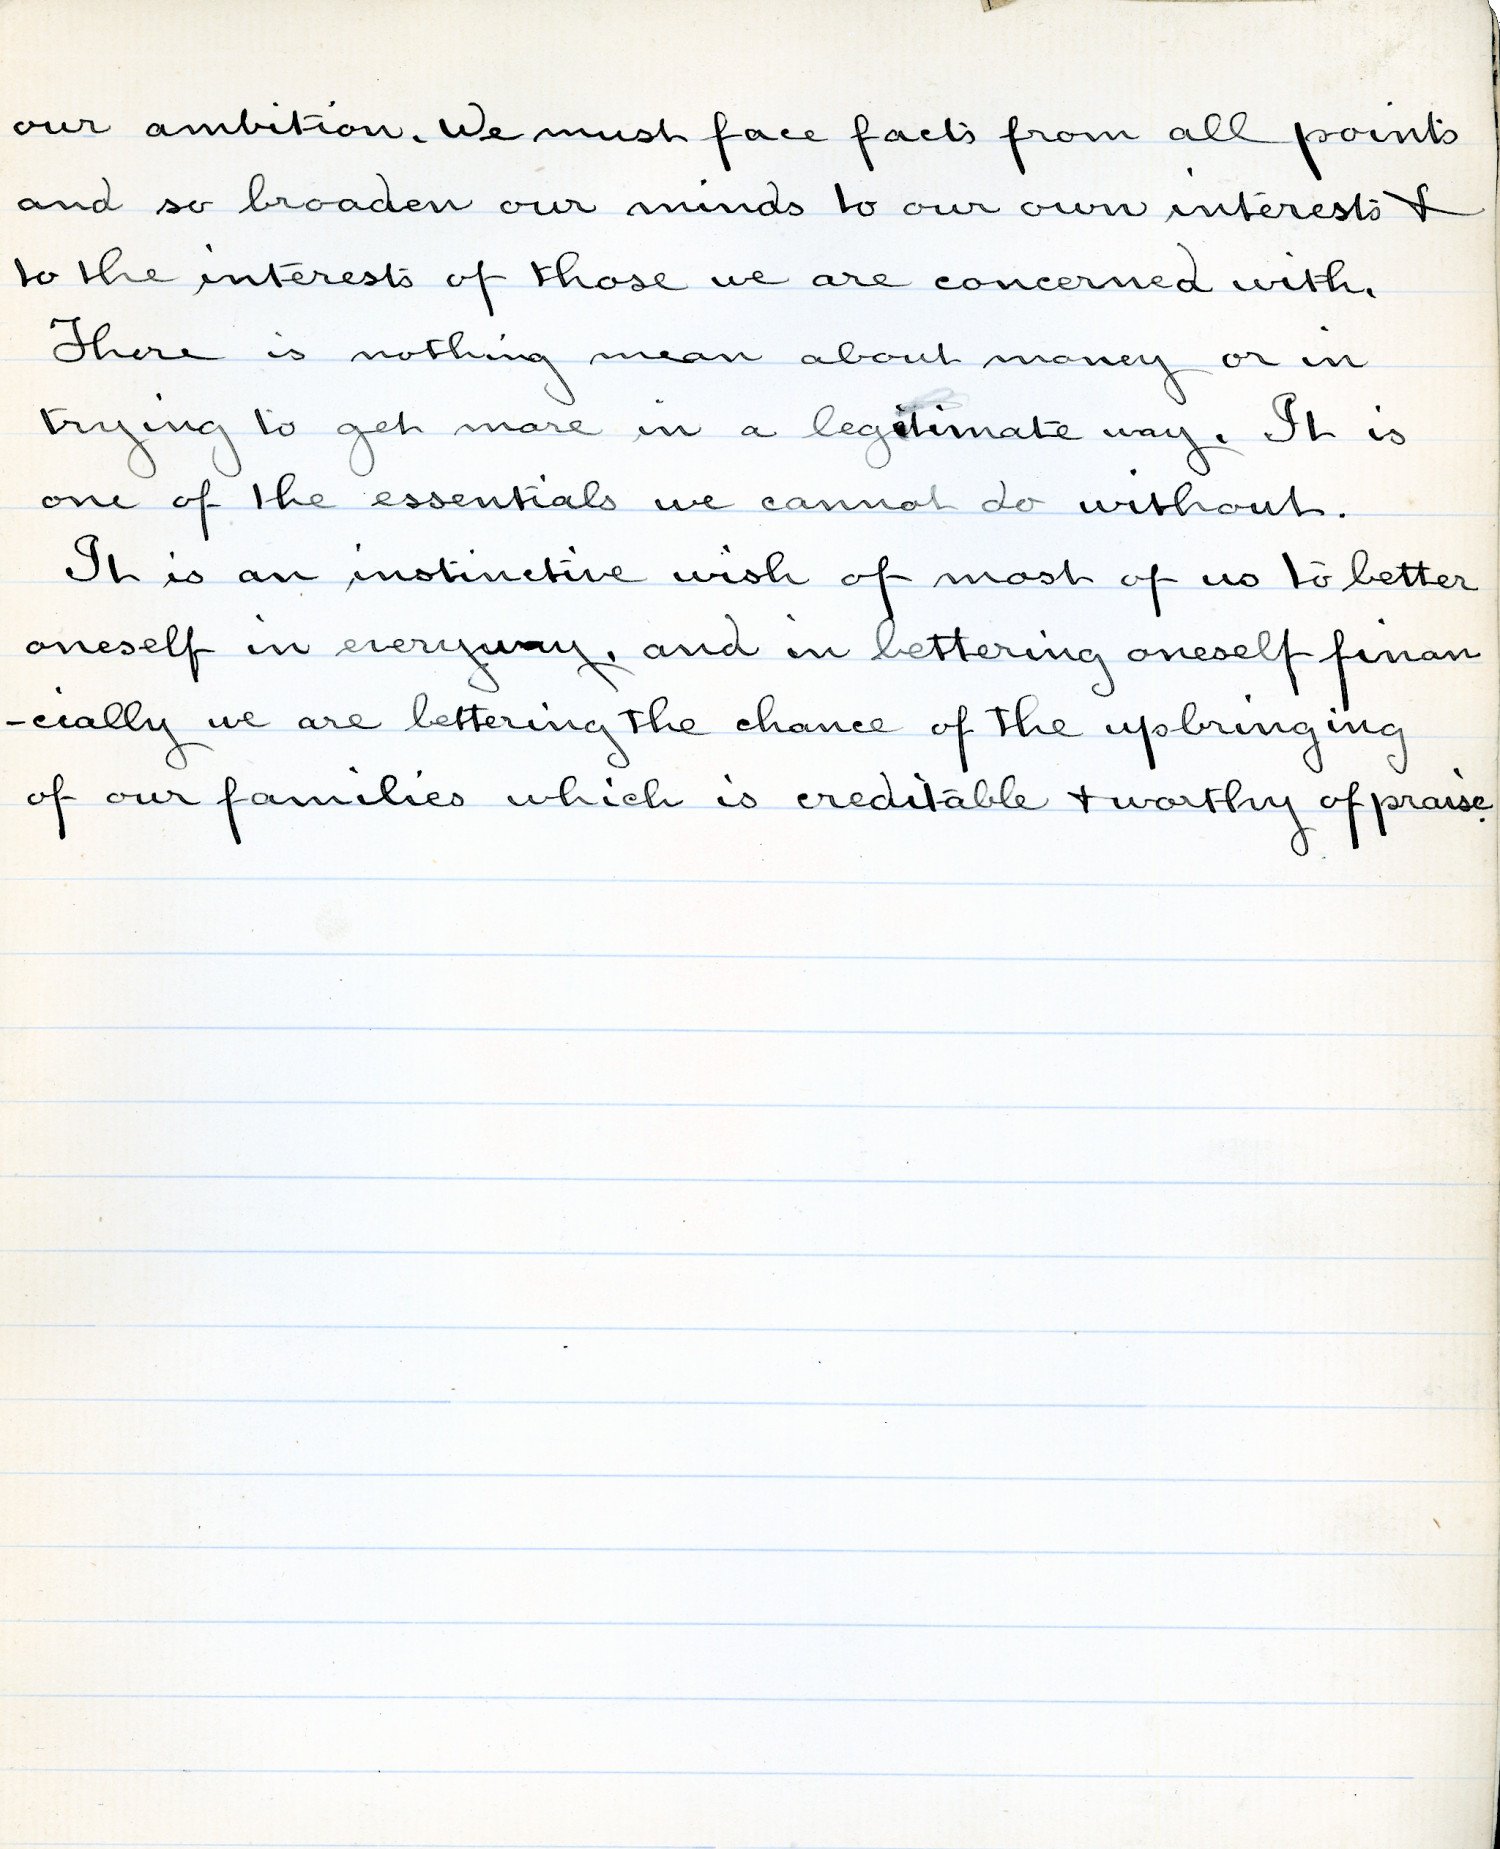 our ambition. We must face facts from all points
and so broaden our minds to our own interests &
to the interests of those we are concerned with.
There is nothing mean about money or in
trying to get more in a legitimate way. It is
one of the essentials we cannot do without.
It is an instinctive wish of most of us to better
oneself in everyway, and in bettering oneself finan
-cially we are bettering the chance of the upbringing
of our families which is creditable & worthy of praise.